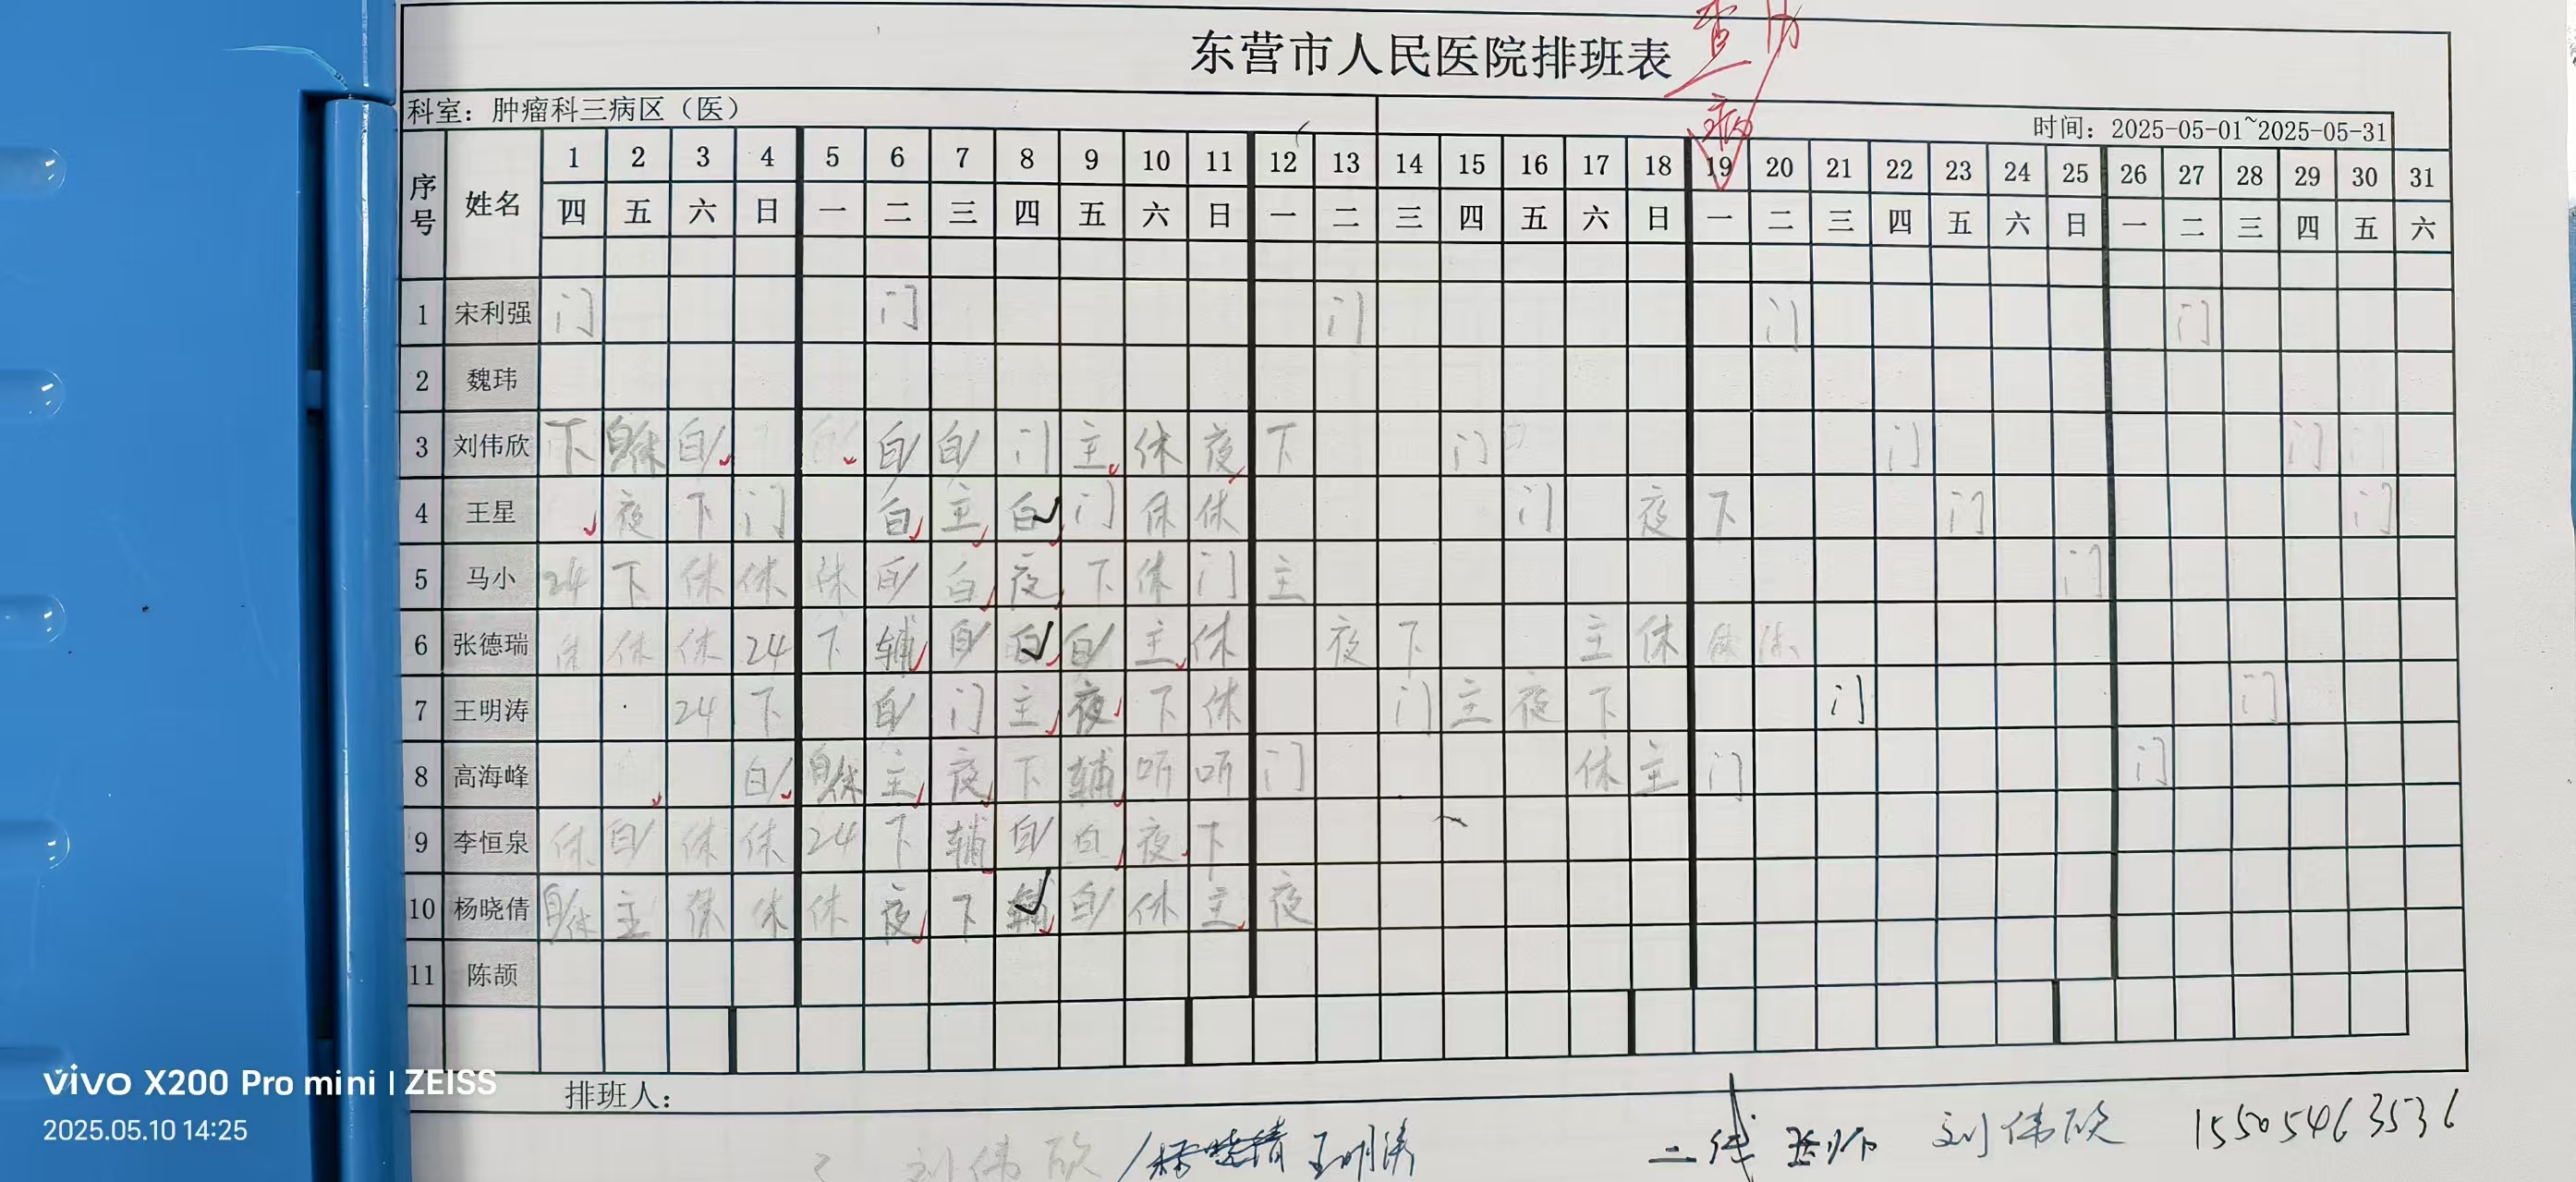 东营市人民医院排班表 查房
科室：肿瘤科三病区（医）
时间：2025-05-01~2025-05-31
序号 姓名 1 2 3 4 5 6 7 8 9 10 11 12 13 14 15 16 17 18 19 20 21 22 23 24 25 26 27 28 29 30 31
四 五 六 日 一 二 三 四 五 六 日 一 二 三 四 五 六 日 一 二 三 四 五 六 日 一 二 三 四 五 六
1 宋利强 门 门 门 门 门
2 魏玮
3 刘伟欣 下 白/休 白/ 白/ 白/ 门 主 休 夜 下 门 门 门
4 王星 夜 下 门 白 主 白 门 休 休 门 夜 下 门 门
5 马小 24 下 休 休 休 白/ 白 夜 下 休 门 主 门
6 张德瑞 休 休 休 24 下 辅 白/ 白 白/ 主 休 夜 下 主 休 休
7 王明涛 24 下 白/ 门 主 夜 下 休 门 主 夜 下 门 门
8 高海峰 白/ 白/休 主 夜 下 辅 听 听 门 休 主 门 门
9 李恒泉 休 白/ 休 休 24 下 辅 白/ 白 夜 下
10 杨晓倩 白/休 主 休 休 休 夜 下 辅 白/ 休 主 夜
11 陈颉
排班人：
刘伟欣 / 杨晓倩 王明涛 二线 医师 刘伟欣 15505463536
vivo X200 Pro mini | ZEISS
2025.05.10 14:25